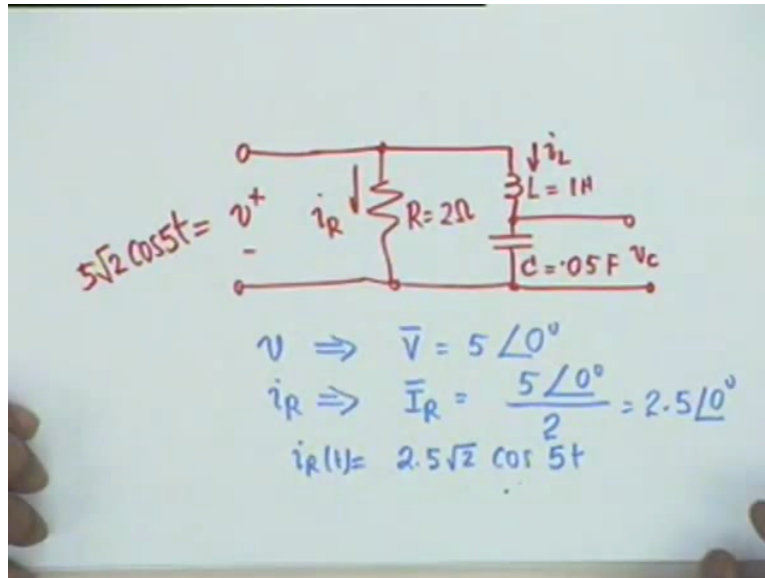 5√2 cos5t = v
+
-
i_R
R=2Ω
i_L
L=1H
C=.05F
v_C
v ⇒ V̅ = 5∠0°
i_R ⇒ I̅_R = 5∠0°/2 = 2.5∠0°
i_R(t)= 2.5√2 cos 5t